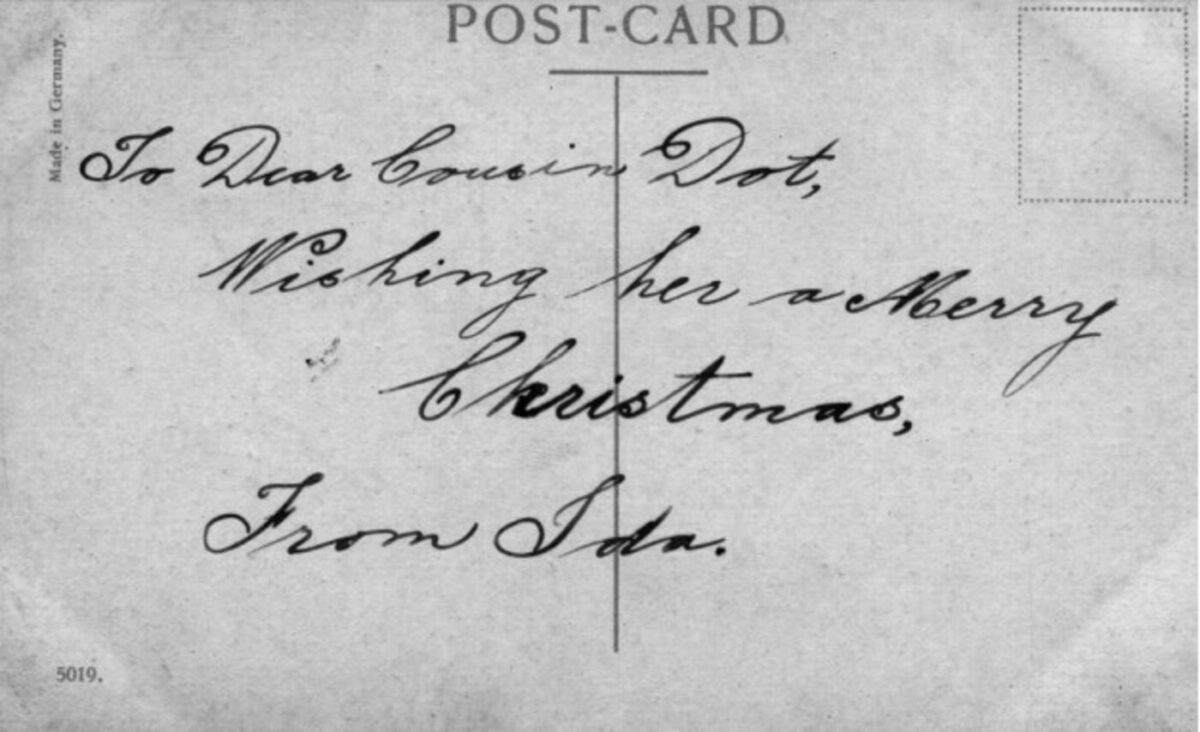 POST-CARD
Made in Germany.
To Dear Cousin Dot,
Wishing her a Merry
Christmas,
From Ida.
5019.